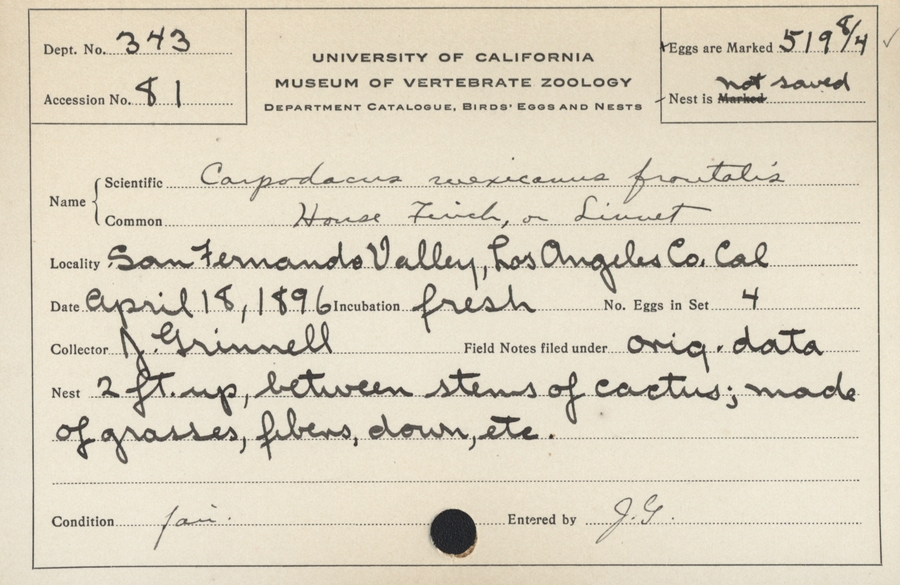 Dept. No. 343
Accession No. 81
UNIVERSITY OF CALIFORNIA
MUSEUM OF VERTEBRATE ZOOLOGY
DEPARTMENT CATALOGUE, BIRDS' EGGS AND NESTS
Eggs are Marked 519 8/4 ✓
not saved
Nest is Marked
Name
Scientific Carpodacus mexicanus frontalis
Common House Finch, or Linnet
Locality San Fernando Valley, Los Angeles Co. Cal
Date April 18, 1896 Incubation fresh No. Eggs in Set 4
Collector J. Grinnell Field Notes filed under orig. data
Nest 2 ft. up, between stems of cactus; made
of grasses, fibers, down, etc.
Condition fair. Entered by J.G.